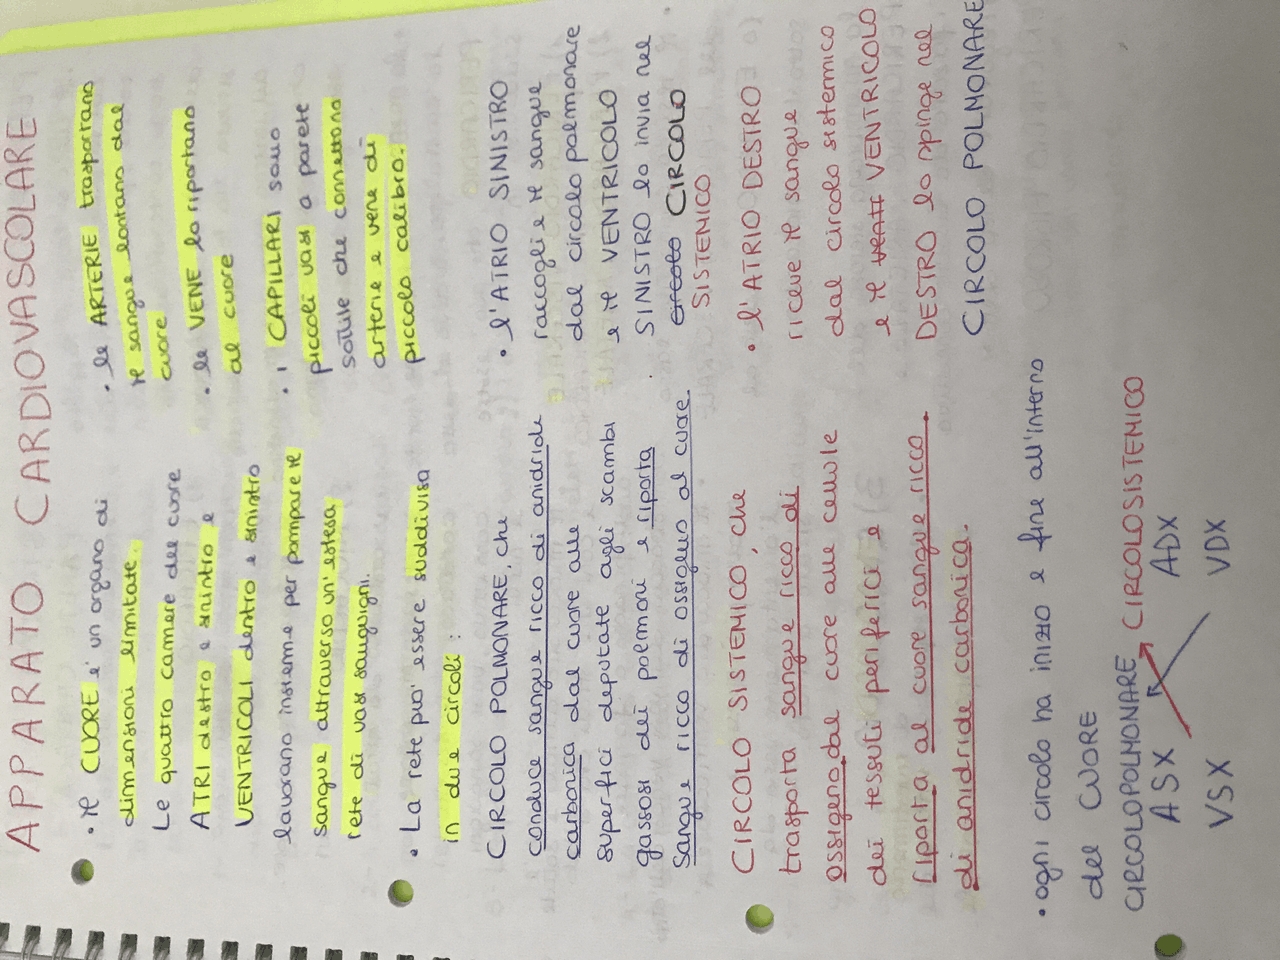 APPARATO CARDIOVASCOLARE
• il CUORE è un organo di
dimensioni limitate.
Le quattro camere del cuore
ATRI destro e sinistro e
VENTRICOLI destro e sinistro
lavorano insieme per pompare il
sangue attraverso un'estesa
rete di vasi sanguigni.
• La rete può essere suddivisa
in due circoli:
CIRCOLO POLMONARE, che
conduce sangue ricco di anidride
carbonica dal cuore alle
superfici deputate agli scambi
gassosi dei polmoni e riporta
sangue ricco di ossigeno al cuore.
CIRCOLO SISTEMICO, che
trasporta sangue ricco di
ossigeno dal cuore alle cellule
dei tessuti periferici e
riporta al cuore sangue ricco
di anidride carbonica.
• ogni circolo ha inizio e fine all'interno
del CUORE
CIRCOLO POLMONARE CIRCOLO SISTEMICO
ASX ADX
VSX VDX
• le ARTERIE trasportano
il sangue lontano dal
cuore
• le VENE lo riportano
al cuore
• i CAPILLARI sono
piccoli vasi a parete
sottile che connettono
arterie e vene di
piccolo calibro.
• l'ATRIO SINISTRO
raccoglie il sangue
dal circolo polmonare
e il VENTRICOLO
SINISTRO lo invia nel
circolo CIRCOLO
SISTEMICO
• l'ATRIO DESTRO
riceve il sangue
dal circolo sistermico
e il VENTRICOLO
DESTRO lo spinge nel
CIRCOLO POLMONARE